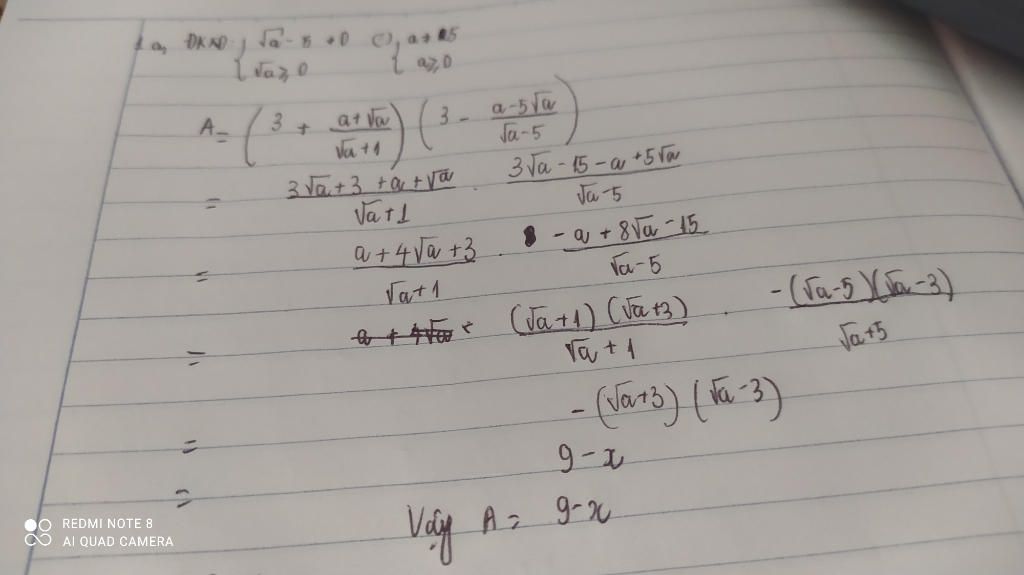 1 a, ĐKXĐ: { √a - 5 ≠ 0 (=) { a ≠ 25
√a ≥ 0 a ≥ 0
A = ( 3 + (a+√a)/(√a+1) ) ( 3 - (a-5√a)/(√a-5) )
= (3√a+3+a+√a)/(√a+1) . (3√a-15-a+5√a)/(√a-5)
= (a+4√a+3)/(√a+1) . (-a+8√a-15)/(√a-5)
= (√a+1)(√a+3)/(√a+1) . -(√a-5)(√a-3)/(√a+5)
= -(√a+3)(√a-3)
= 9-x
Vậy A = 9-x
REDMI NOTE 8
AI QUAD CAMERA